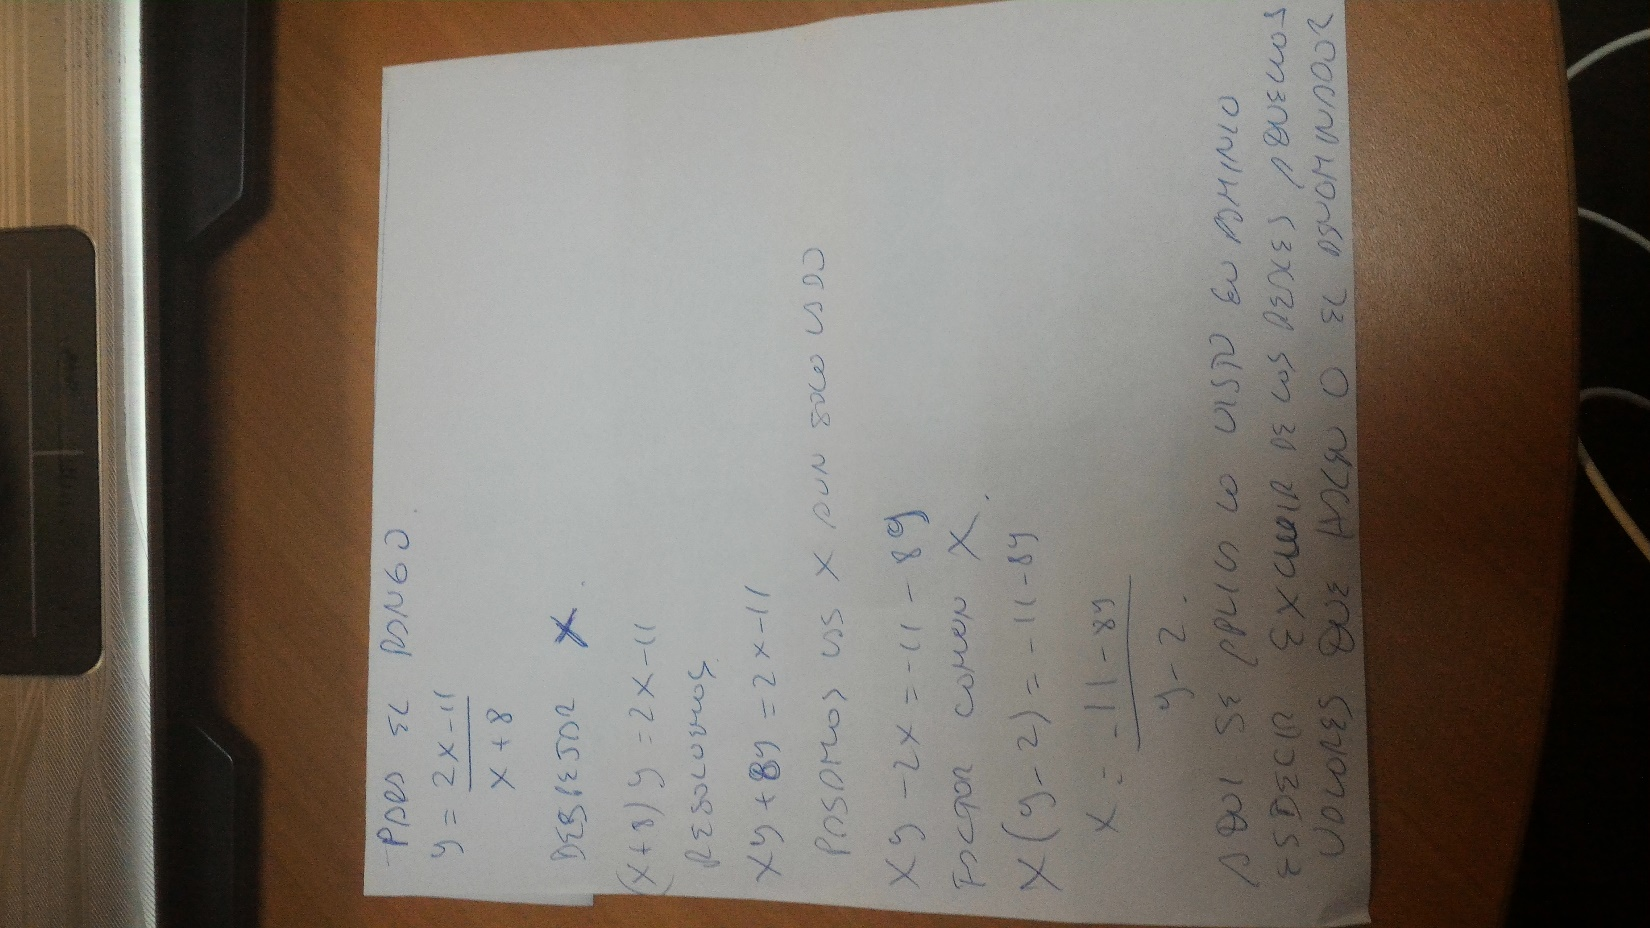 PARA EL RANGO.
y = 2x-11
x+8
DESPEJAR X.
(x+8) y = 2x-11
RESOLVEMOS
xy + 8y = 2x-11
PASAMOS LAS X A UN SOLO LADO
xy - 2x = -11 - 8y
FACTOR COMUN X.
x(y-2) = -11-8y
x = -11-8y
y-2.
AQUI SE APLICA LO VISTO EN DOMINIO
ES DECIR EXCLUIR DE LOS REALES AQUELLOS
VALORES QUE HACEN 0 EL DENOMINADOR